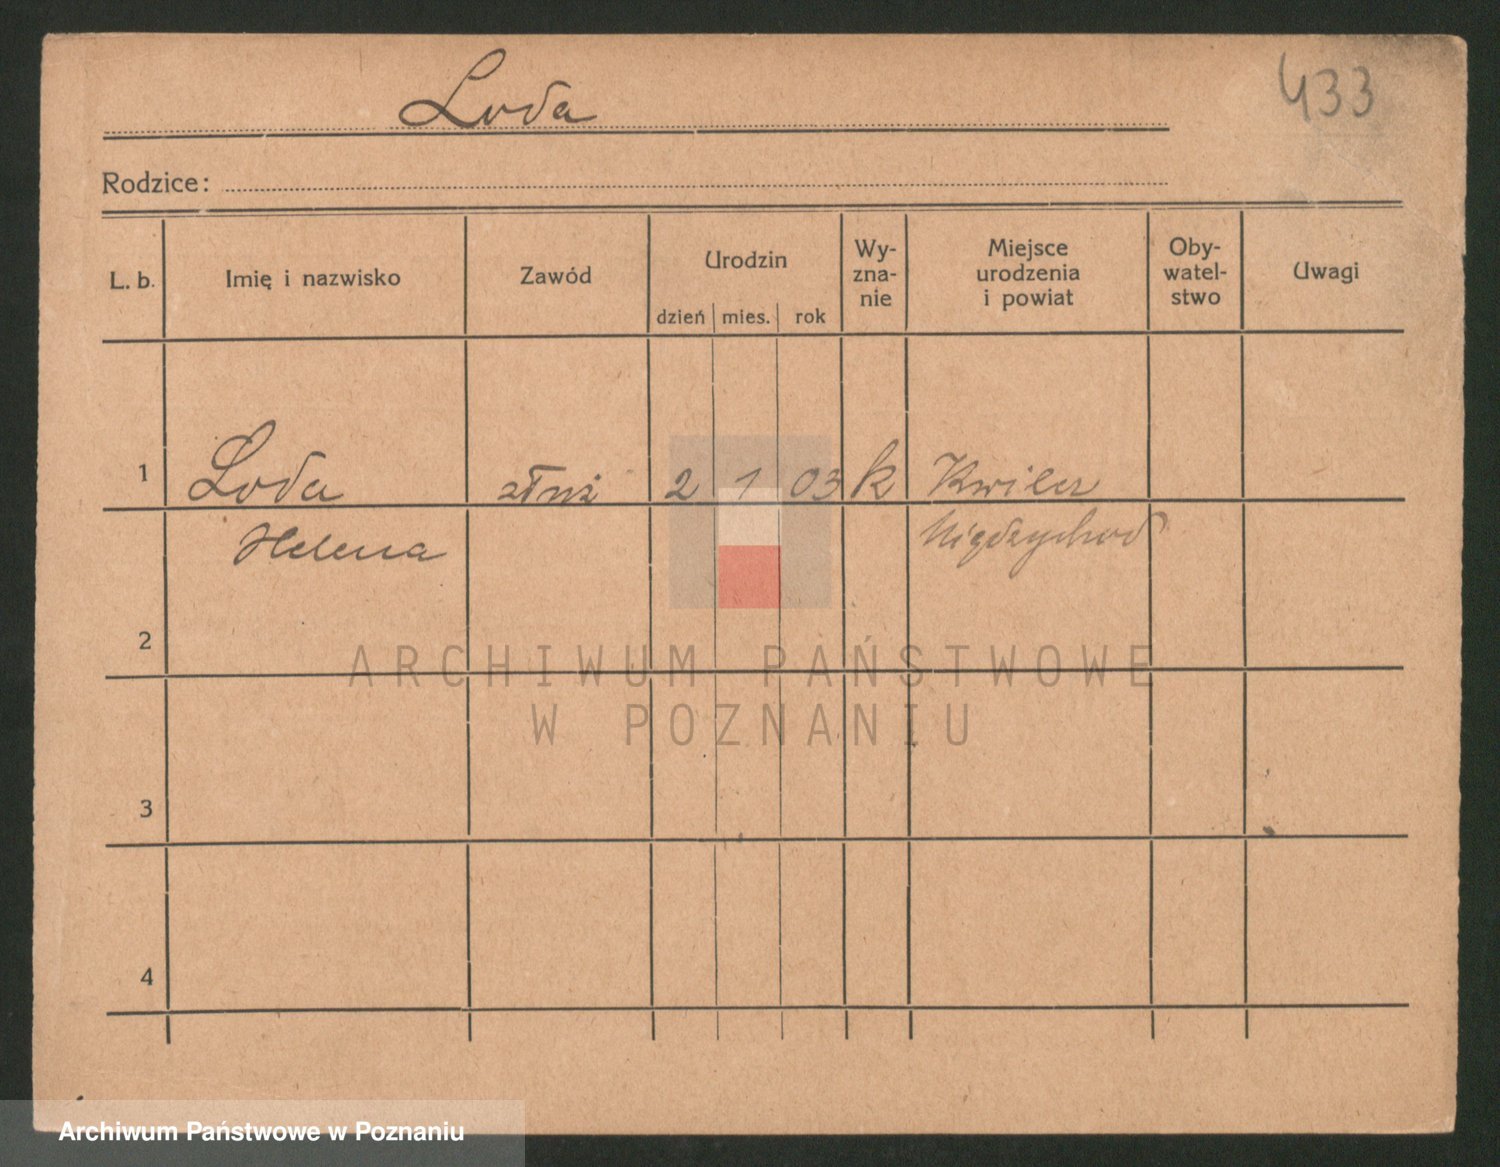 Loda
433
Rodzice:
L. b. Imię i nazwisko Zawód Urodzin dzień mies. rok Wy-zna-nie Miejsce urodzenia i powiat Oby-watel-stwo Uwagi
1 Loda 2 1 03 k Kwilcz
Helena Międzychod
2
ARCHIWUM PAŃSTWOWE
W POZNANIU
3
4
Archiwum Państwowe w Poznaniu